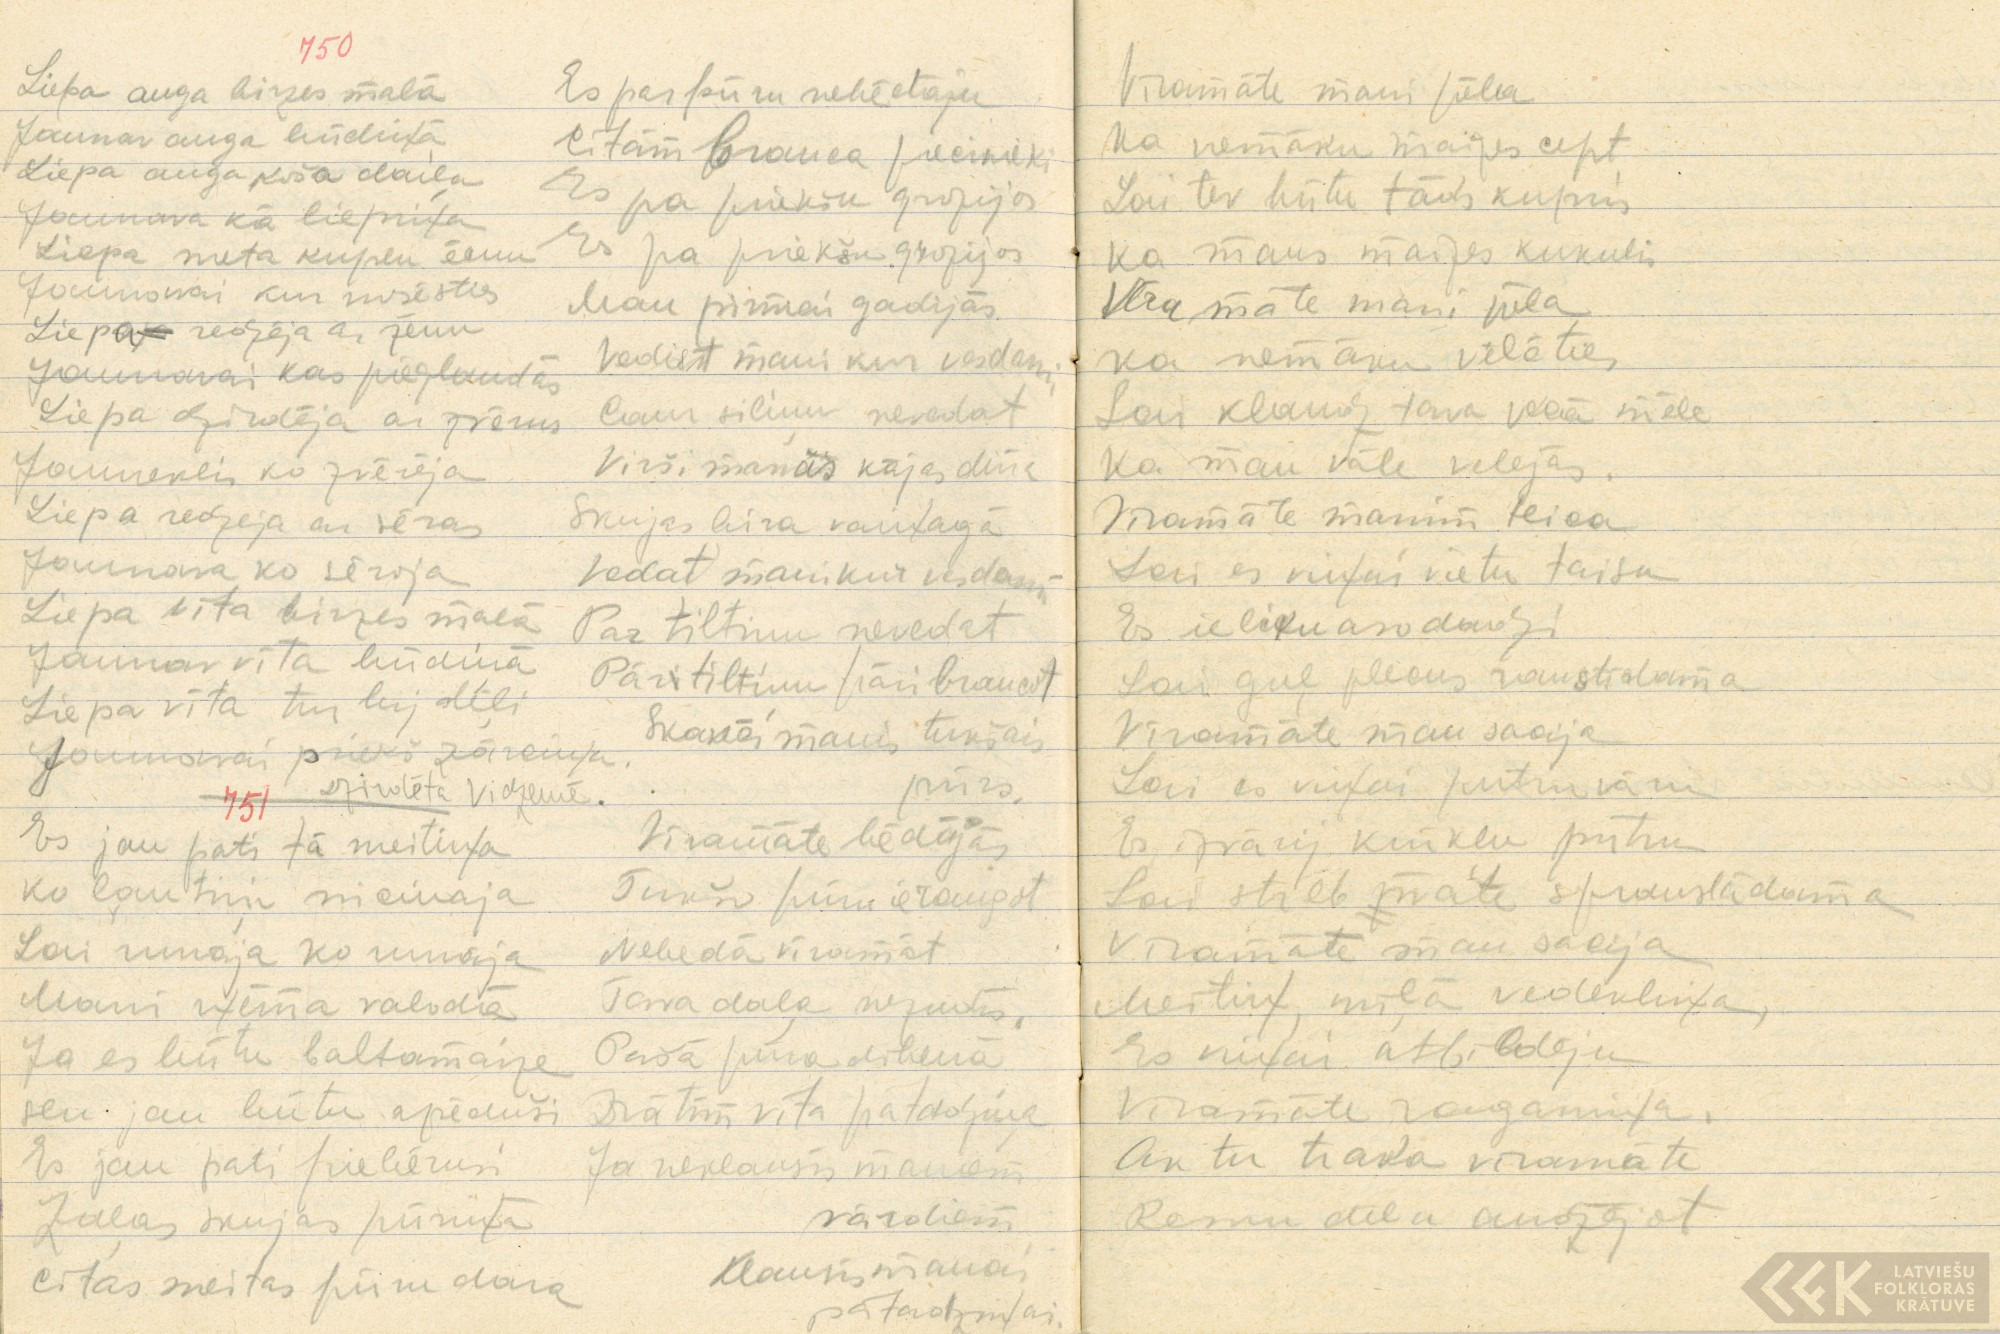 750
Liepa auga birzes malā
Jaunav auga būdiņā
Liepa auga koša daiļa
Jaunava kā liepiņa
Liepa meta kuplu ēenu
Jaunavai kur nosēsties
Liepa redzēja ar zemu
Jaunavai kas pieglaudās
Liepa dzirdēja ar zvērus
Jauneklis ko zvērēja
Liepa redzēja ar sēras
Jaunava ko sēroja
Liepa vīta birzes malā
Jaunav vīta būdiņā
Liepa vīta tur bij dēļi
Jaunavai priekš zārciņa.
dzirdēta Vidzemē.
751
Es jau pati tā meitiņa
ko ļautiņi nicinaja
Lai runāja ko runāja
Mani ņēma valodā
Ja es būtu baltamaize
sen jau būtu apēduši
Es jau pati piebērusi
Zaļas skujas pūriņā
Citas meitas pūru dara
Es par pūru nebēdāju
Citām brauca precinieki
Es pa priekšu grozijos
Es pa priekšu grozijos
Man pirmai gadijās
Vediet mani kur vesdami
Caur siliņu nevedat
Virši manās kājas dina
Skujas bira vaiņagā
Vedat mani kur vesdami
Par tiltiņu nevedat
Pāri tiltiņu pāri braucot
Skanēi manis tukšais
pūrs.
Vīramāte bēdājās
Tukšo pūru ieraugot
Nebedā vīramāt
Tava daļa nezudīs.
Pašā pūra dibenā
Drātīm vīta pātadziņa
Ja neklausīs maniem
vārdiem
Klausīs manai
pātadziņai.
Vīramāte mani pēla
Ka nemāku maizes cept
Lai tev būtu tāds kupris
Ka mans maizes kukulis
Vīra māte mani pēla
ka nemāku vēlēties
Lai klaudz tava vecā mēle
Ka man vāle velējās.
Vīramāte manim teica
Lai es viņai vietu taisu
Es ieliku aso dadzi
Lai guļ plecus raustīdama
Vīramāte man sacija
Lai es viņai putru vāru
Es izvārij kūkļu putru
Lai strēb māte sprauslādama
Vīramāte man sacija
Meitiņ, mīļā vedekliņa,
Es viņai atbildēju
Vīramāte raganiņa.
Ak tu traka vīramāte
Resnu dēlu audzējot
LATVIEŠU
FOLKLORAS
KRĀTUVE